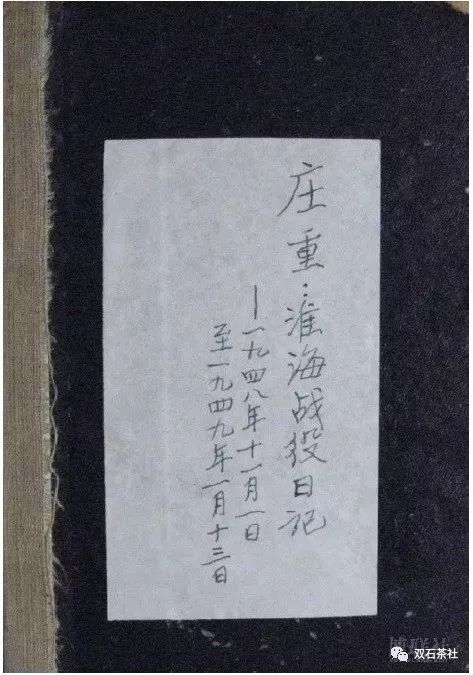 庄重:淮海战役日记
—一九四八年十一月一日
至一九四九年一月十三日
双石茶社